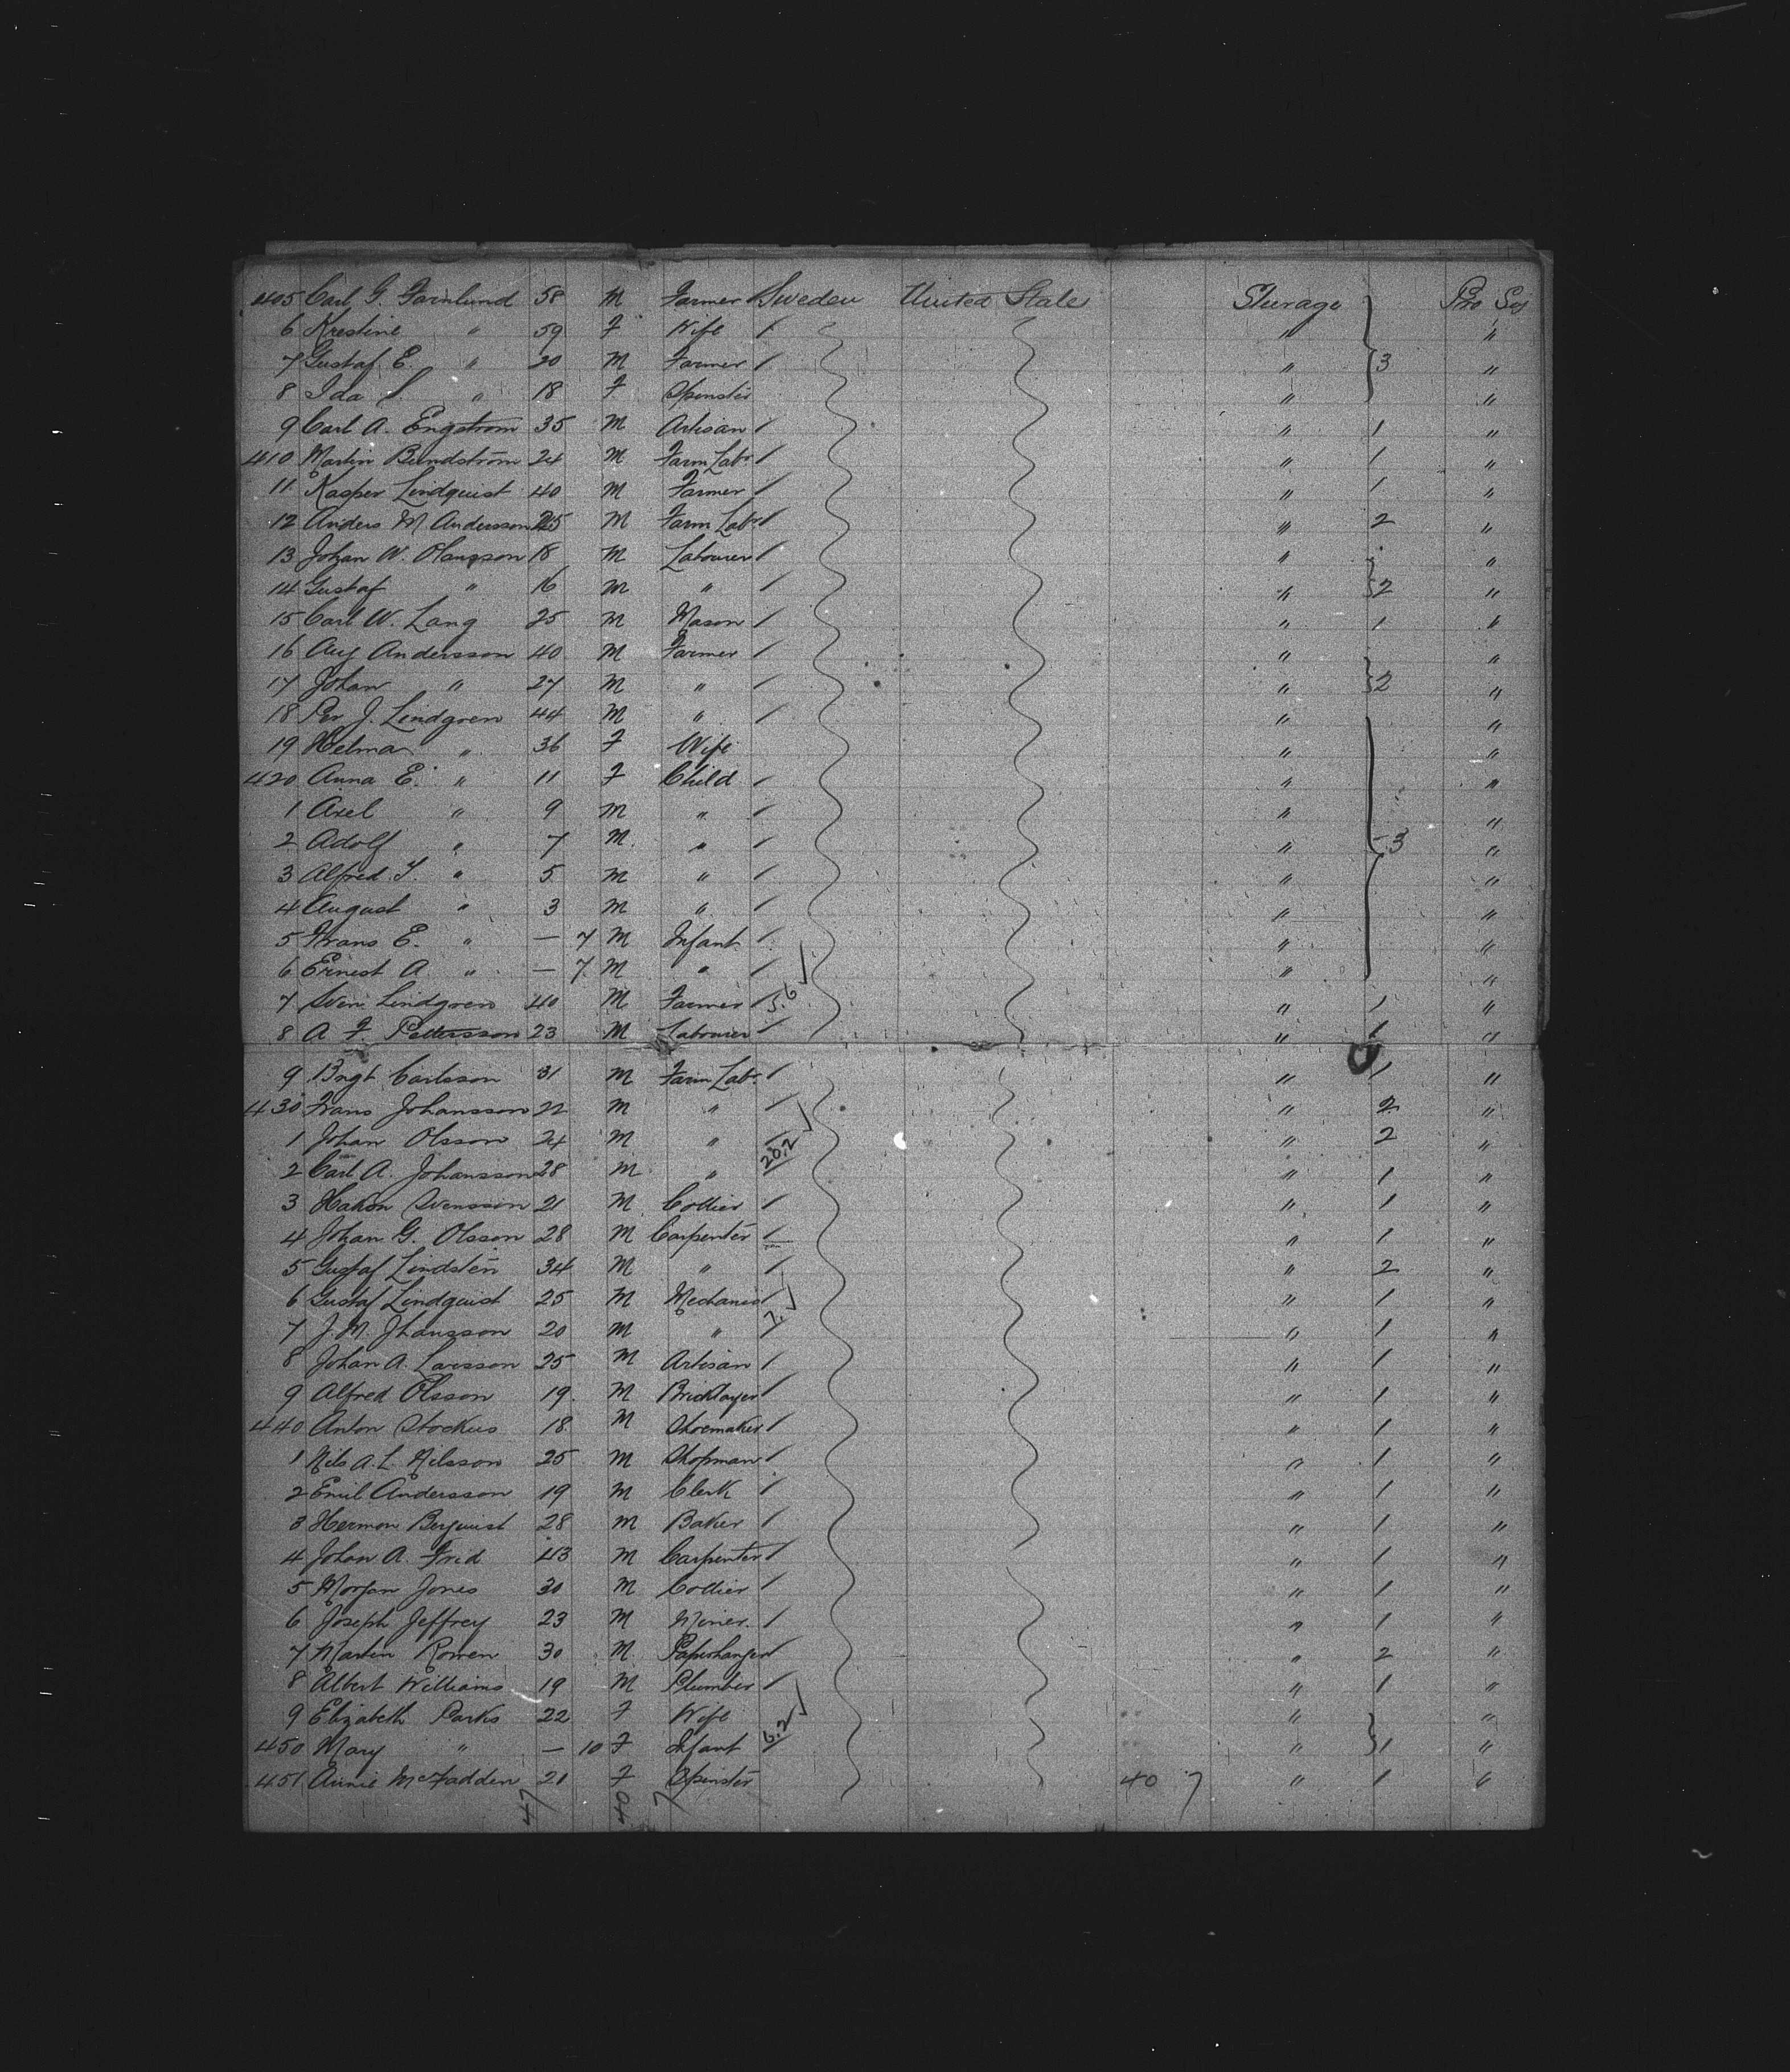 405 Carl G. Farnlund 58 M Farmer Sweden United State Sturage Pro Soj
6 Krestine " 59 F Wife / " "
7 Gustaf E. " 20 M Farmer / " 3 "
8 Ida S. " 18 F Spinster " "
9 Carl A. Engstrom 35 M Artisan / " 1 "
410 Martin Bundström 24 M Farm Labr / " 1 "
11 Kasper Lindquist 40 M Farmer / " 1 "
12 Anders M Andersson 25 M Farm Labr / " 2 "
13 Johan W. 18 M Labourer / " "
14 Gustaf " 16 M " / " 2 "
15 Carl W. Lang 25 M Mason / " 1 "
16 Aug Andersson 40 M Farmer / " "
17 Johan " 27 M " / " 2 "
18 Per J. Lindgren 44 M " / " "
19 Helma " 36 F Wife " "
420 Anna E. " 11 F Child / " "
1 Axel " 9 M " / " "
2 Adolf " 7 M " / " 3 "
3 Alfred T. " 5 M " / " "
4 August " 3 M " / " "
5 Frans E. " — 7 M Infant / " "
6 Ernest A " — 7 M " / " "
7 Sven Lindgren 40 M Farmer / 5.6 √ " 1 "
8 A F. Pettersson 23 M Labourer / " 1 "
9 Bngt Carlsson 31 M Farm Labr / " 1 "
430 Frans Johansson 22 M " / " 2 "
1 Johan Olsson 24 M " / 20.2 √ " 2 "
2 Carl A. Johansson 28 M " " 1 "
3 Hakon Svensson 21 M Collier / " 1 "
4 Johan G. Olsson 28 M Carpenter / " 1 "
5 Gustaf Lindsten 34 M " / " 2 "
6 Gustaf Lindquist 25 M Mechanic / " 1 "
7 J. M. Jhansson 20 M " / 7. √ " 1 "
8 Johan A. Larsson 25 M Artisan / " 1 "
9 Alfred Olsson 19 M Bricklayer / " 1 "
440 Anton Stockus 18 M Shoemaker / " 1 "
1 Nils A. L. Nilsson 25 M Shopman / " 1 "
2 Emil Andersson 19 M Clerk / " 1 "
3 Hermon Berquist 28 M Baker / " 1 "
4 Johan A. Frid 43 M Carpenter / " 1 "
5 Morgan Jones 30 M Collier / " 1 "
6 Joseph Jeffrey 23 M Miner. / " 1 "
7 Martin Rowen 30 M Paperhanger / " 2 "
8 Albert Williams 19 M Plumber / " 1 "
9 Elizabeth Parks 22 F Wife " "
450 Mary " — 10 F Infant / 6.2 √ " 1 "
451 Annie McFadden 21 F Spinster 40 7 " 1 "
47 40 7